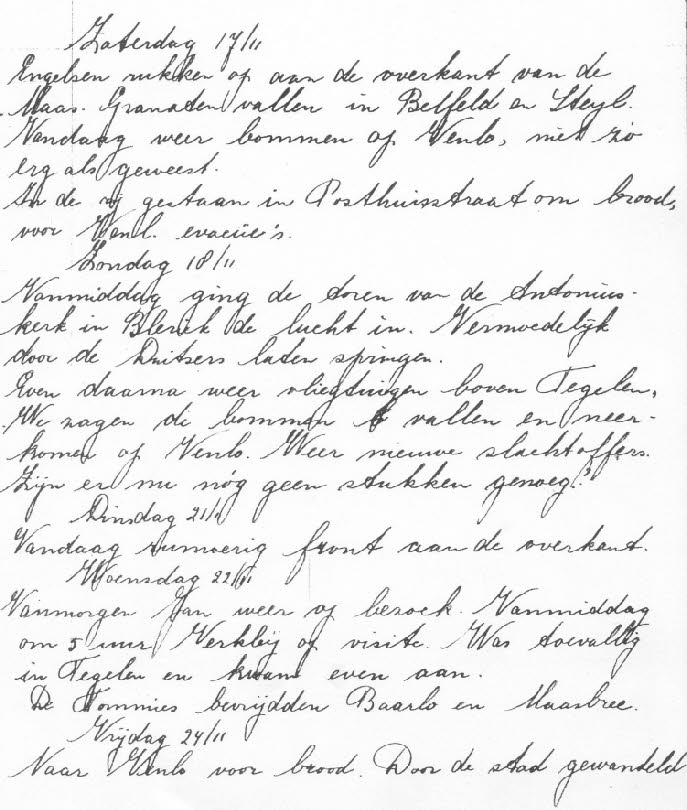 Zaterdag 17/11
Engelsen rukken op aan de overkant van de
Maas. Granaten vallen in Belfeld en Steyl.
Vandaag weer bommen op Venlo, niet zo
erg als geweest.
In de rij gestaan in Posthuisstraat om brood,
voor Venl. evacué's.
Zondag 18/11
Vanmiddag ging de toren van de Antonius-
kerk in Blerick de lucht in. Vermoedelijk
door de Duitsers laten springen.
Even daarna weer vliegtuigen boven Tegelen,
We zagen de bommen vallen en neer-
komen op Venlo. Weer nieuwe slachtoffers.
Zijn er nu nóg geen stukken genoeg?
Dinsdag 21/11
Vandaag rumoerig front aan de overkant.
Woensdag 22/11
Vanmorgen Jan weer op bezoek. Vanmiddag
om 5 uur op visite. Was toevallig
in Tegelen en kwam even aan.
De Tommies bevrijdden Baarlo en Maasbree.
Vrijdag 24/11
Naar Venlo voor brood. Door de stad gewandeld